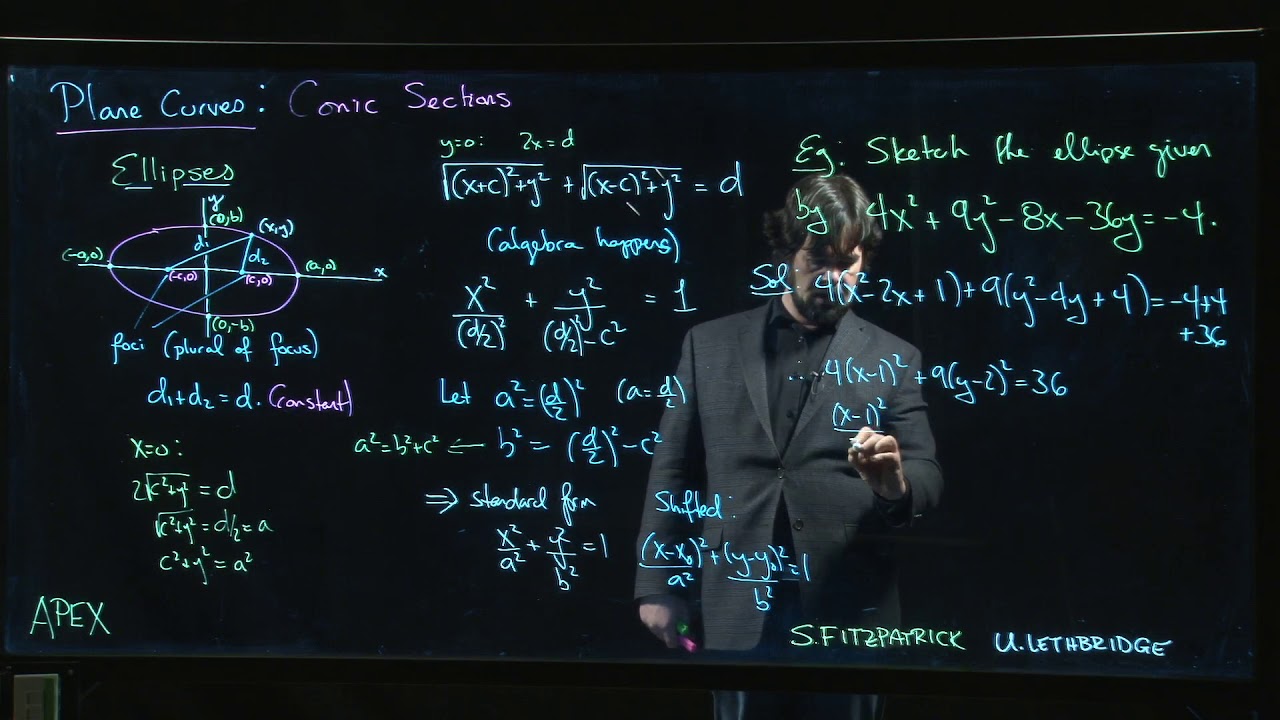 Plane Curves: Conic Sections
Ellipses
y
(0,b)
(x,y)
d₁
d₂
(-a,0)
(-c,0)
(c,0)
(a,0)
x
(0,-b)
foci (plural of focus)
d₁+d₂ = d. (constant)
x=0:
2√(c²+y²) = d
√(c²+y²) = d/2 = a
c²+y² = a²
APEX
y=0: 2x=d
√((x+c)²+y²) + √((x-c)²+y²) = d
(algebra happens)
x²/(d/2)² + y²/((d/2)²-c²) = 1
Let a² = (d/2)² (a = d/2)
a²=b²+c² ⟸ b² = (d/2)²-c²
⇒ standard form
x²/a² + y²/b² = 1
Shifted:
(x-x₀)²/a² + (y-y₀)²/b² = 1
Eg: Sketch the ellipse given
by 4x²+9y²-8x-36y=-4.
Sol: 4(x²-2x+1)+9(y²-4y+4)=-4+4
+36
... 4(x-1)²+9(y-2)²=36
(x-1)²
S.FITZPATRICK U.LETHBRIDGE